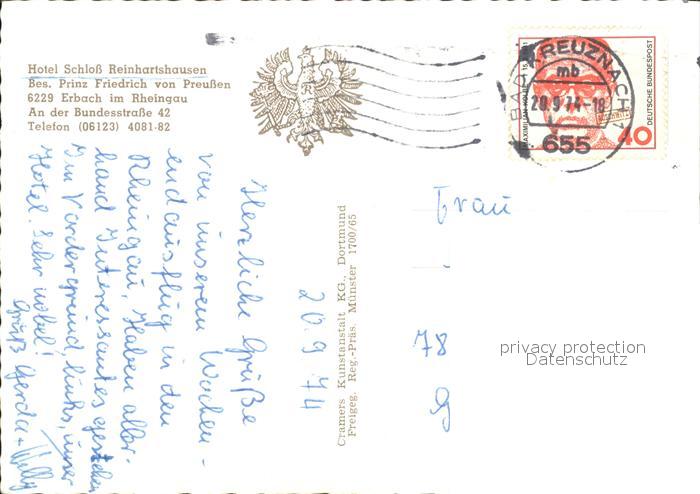 Hotel Schloß Reinhartshausen
Bes. Prinz Friedrich von Preußen
6229 Erbach im Rheingau
An der Bundesstraße 42
Telefon (06123) 4081-82
R
BAD KREUZNACH 1
mb
20.9.74-18
655
MAXIMILIAN KOLBE
AUSCHWITZ
DEUTSCHE BUNDESPOST
40
20.9.74
Herzliche Grüße
von unserem Wochen-
endausflug in den
Rheingau. Haben aller-
hand Interessantes gesehen
Im Vordergrund, links, unser
Hotel. Sehr nobel!
Gruß Gerda + Willy
Cramers Kunstanstalt KG., Dortmund
Freigeg. Reg.-Präs. Münster 1700/65
Frau
78
privacy protection
Datenschutz